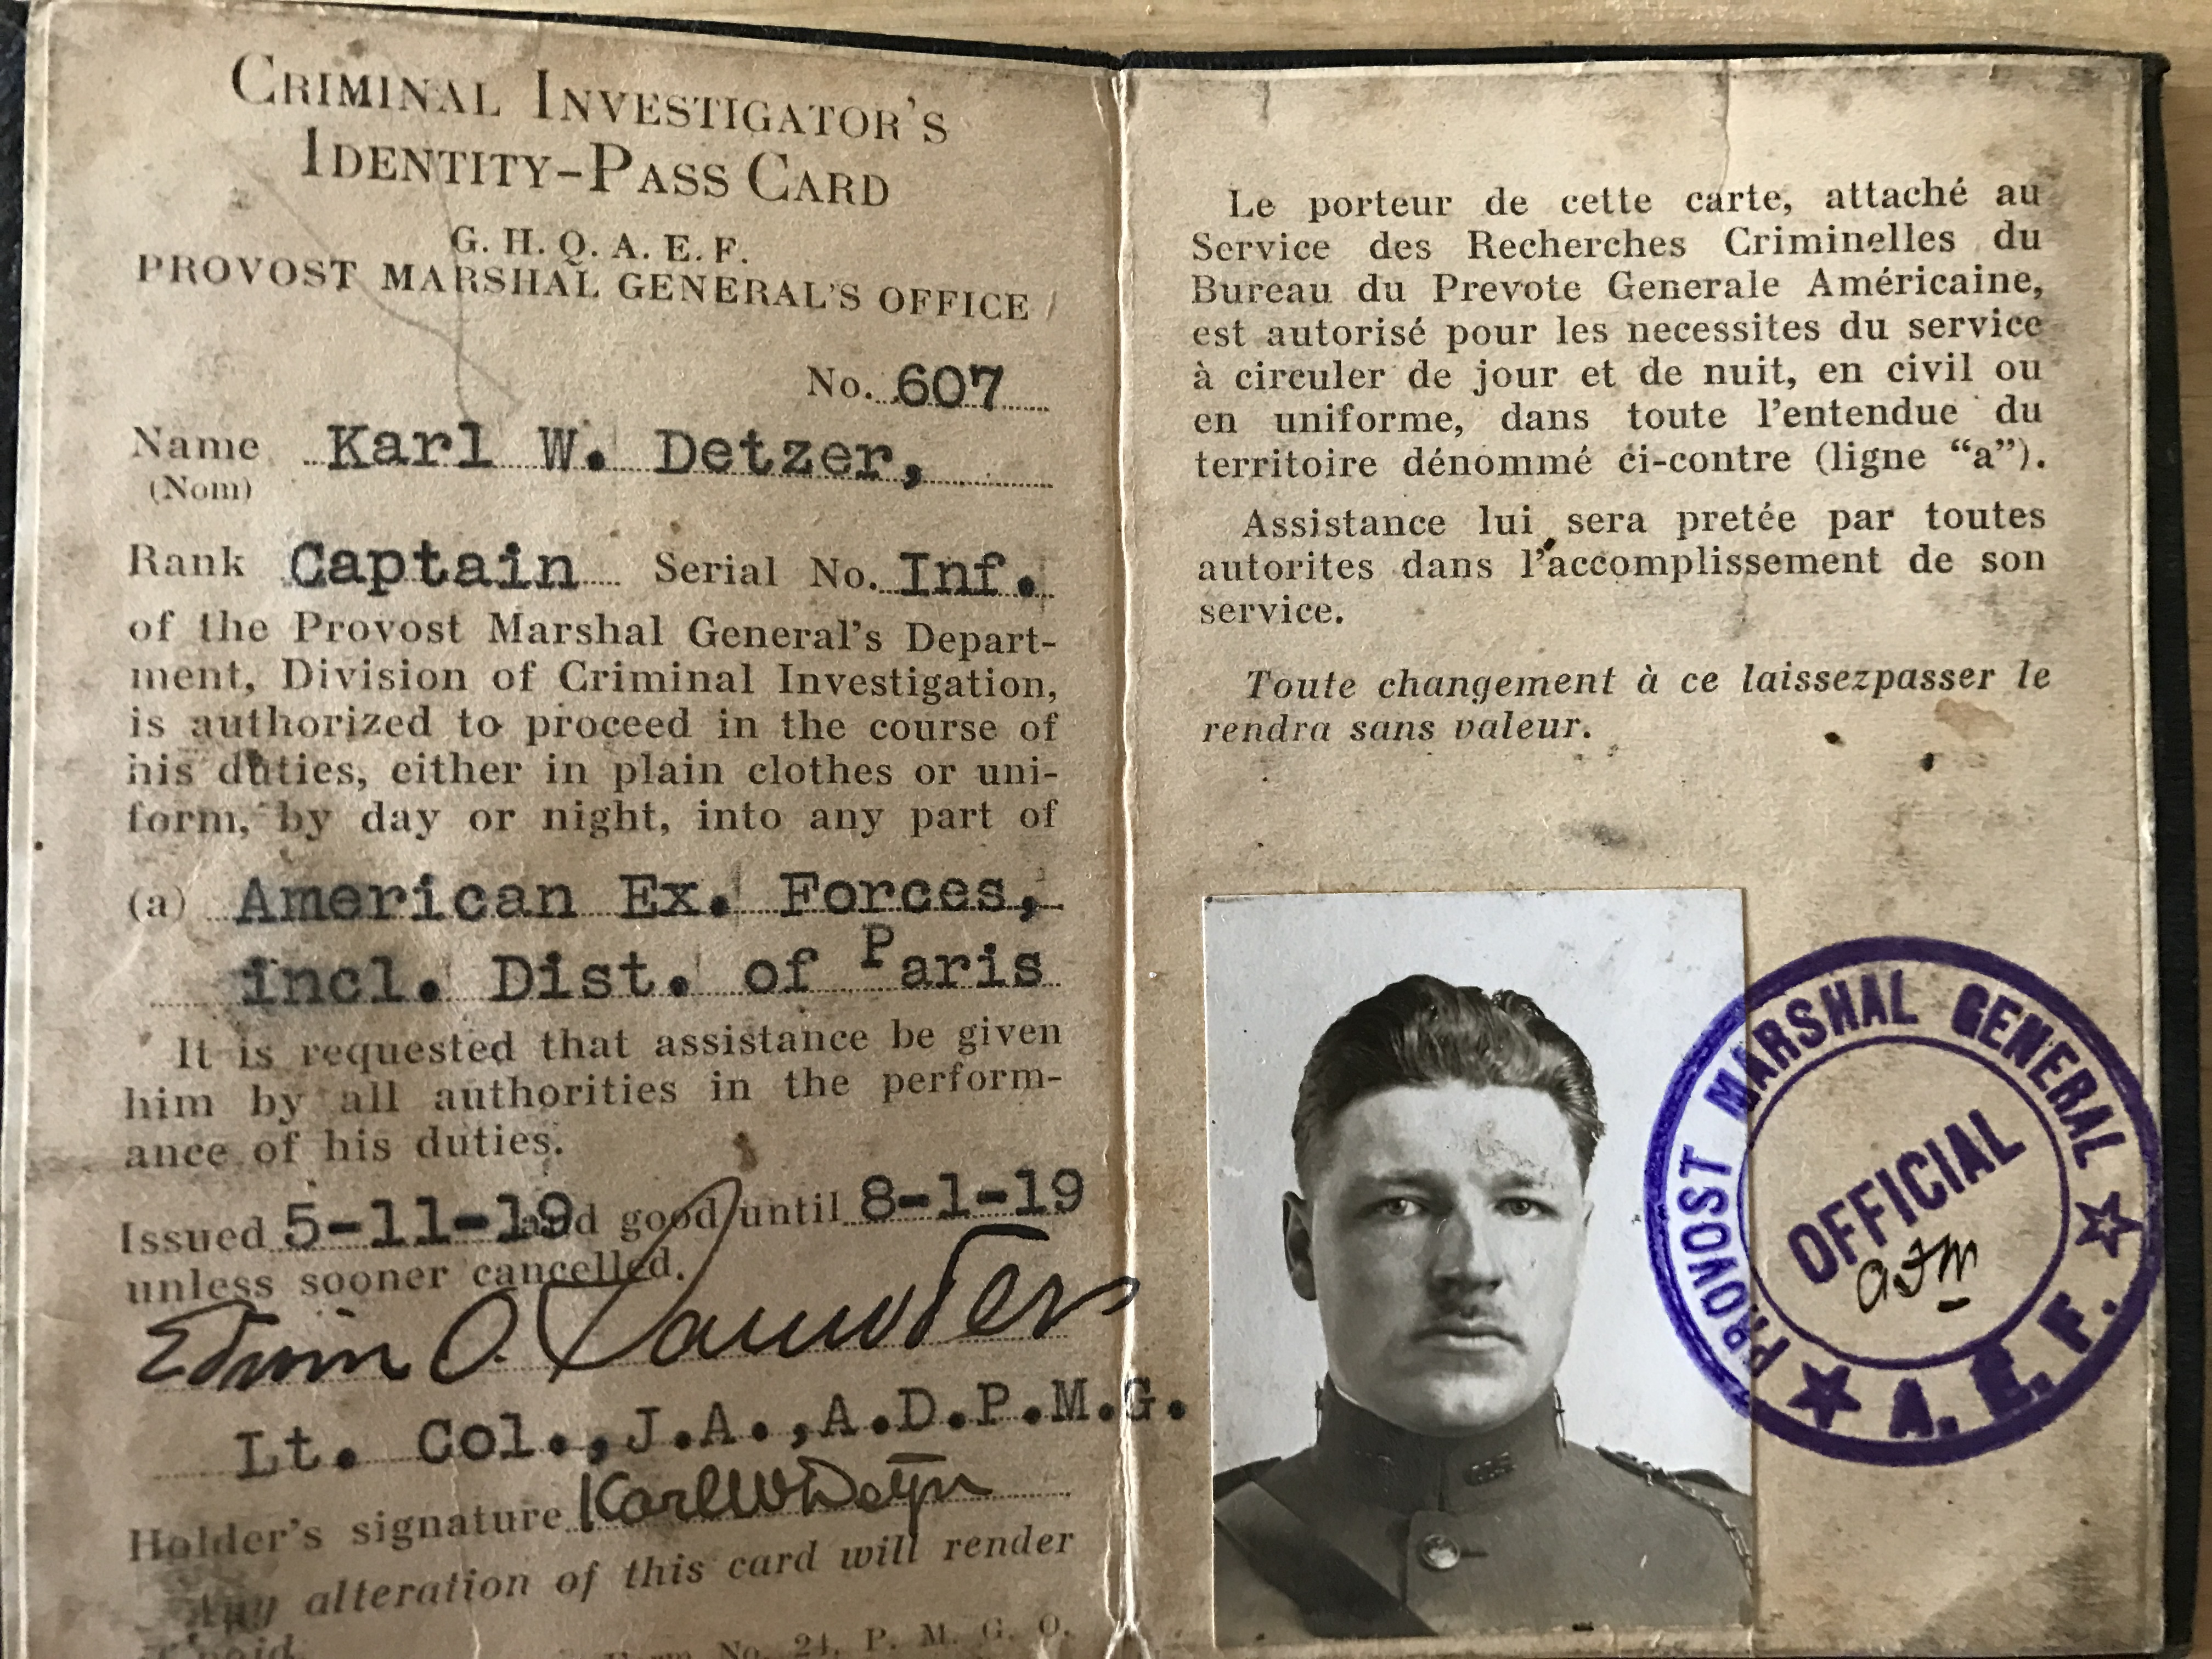 CRIMINAL INVESTIGATOR'S
IDENTITY-PASS CARD
G. H. Q. A. E. F.
PROVOST MARSHAL GENERAL'S OFFICE
No. 607
Name Karl W. Detzer,
(Nom)
Rank Captain Serial No. Inf.
of the Provost Marshal General's Depart-
ment, Division of Criminal Investigation,
is authorized to proceed in the course of
his duties, either in plain clothes or uni-
form, by day or night, into any part of
(a) American Ex. Forces,
incl. Dist. of Paris
It is requested that assistance be given
him by all authorities in the perform-
ance of his duties.
Issued 5-11-19 and good until 8-1-19
unless sooner cancelled.
Edwin O. Saunders
Lt. Col., J.A., A.D.P.M.G.
Holder's signature Karl W Detzer
Any alteration of this card will render
Form No. 24, P. M. G. O.
Le porteur de cette carte, attaché au
Service des Recherches Criminelles du
Bureau du Prevote Generale Américaine,
est autorisé pour les necessites du service
à circuler de jour et de nuit, en civil ou
en uniforme, dans toute l'entendue du
territoire dénommé ci-contre (ligne "a").
Assistance lui sera pretée par toutes
autorites dans l'accomplissement de son
service.
Toute changement à ce laissezpasser le
rendra sans valeur.
PROVOST MARSHAL GENERAL
OFFICIAL
A. E. F.